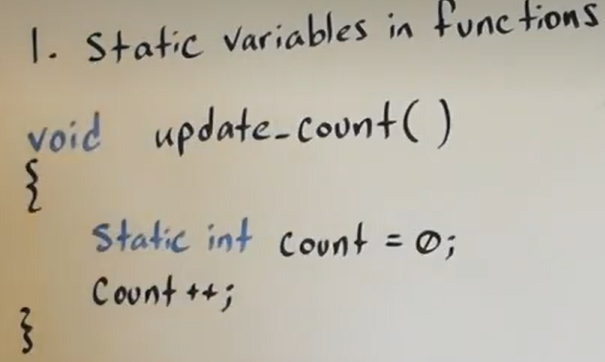 1. Static variables in functions
void update_count()
{
static int count = 0;
count ++;
}